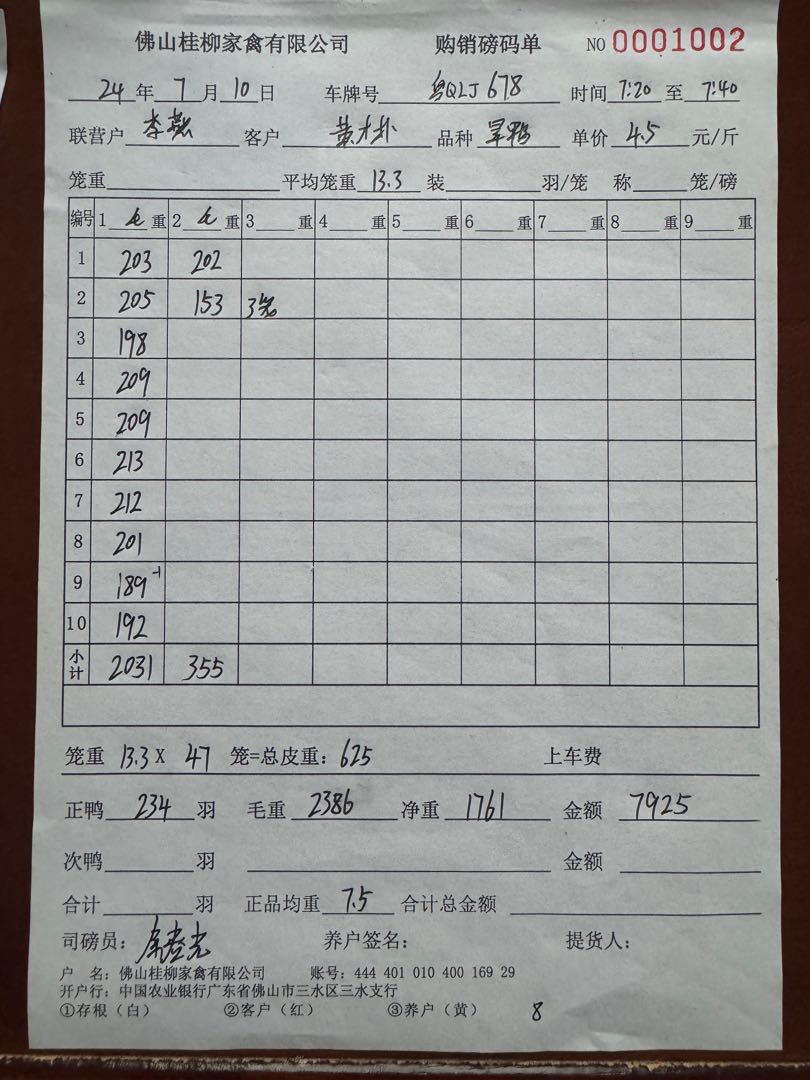 佛山桂柳家禽有限公司 购销磅码单 NO 0001002
24年 7月 10日 车牌号 粤QLJ 678 时间 7:20 至 7:40
联营户 客户 黄木扑 品种 单价 4.5 元/斤
笼重 平均笼重 13.3 装 羽/笼 称 笼/磅
编号 1 重 2 重 3 重 4 重 5 重 6 重 7 重 8 重 9 重
1 203 202
2 205 153 3笼
3 198
4 209
5 209
6 213
7 212
8 201
9 189 -1
10 192
小计 2031 355
笼重 13.3 X 47 笼=总皮重: 625 上车费
正鸭 234 羽 毛重 2386 净重 1761 金额 7925
次鸭 羽 金额
合计 羽 正品均重 7.5 合计总金额
司磅员: 养户签名: 提货人:
户 名: 佛山桂柳家禽有限公司 账号: 444 401 010 400 169 29
开户行: 中国农业银行广东省佛山市三水区三水支行
①存根（白） ②客户（红） ③养户（黄） 8